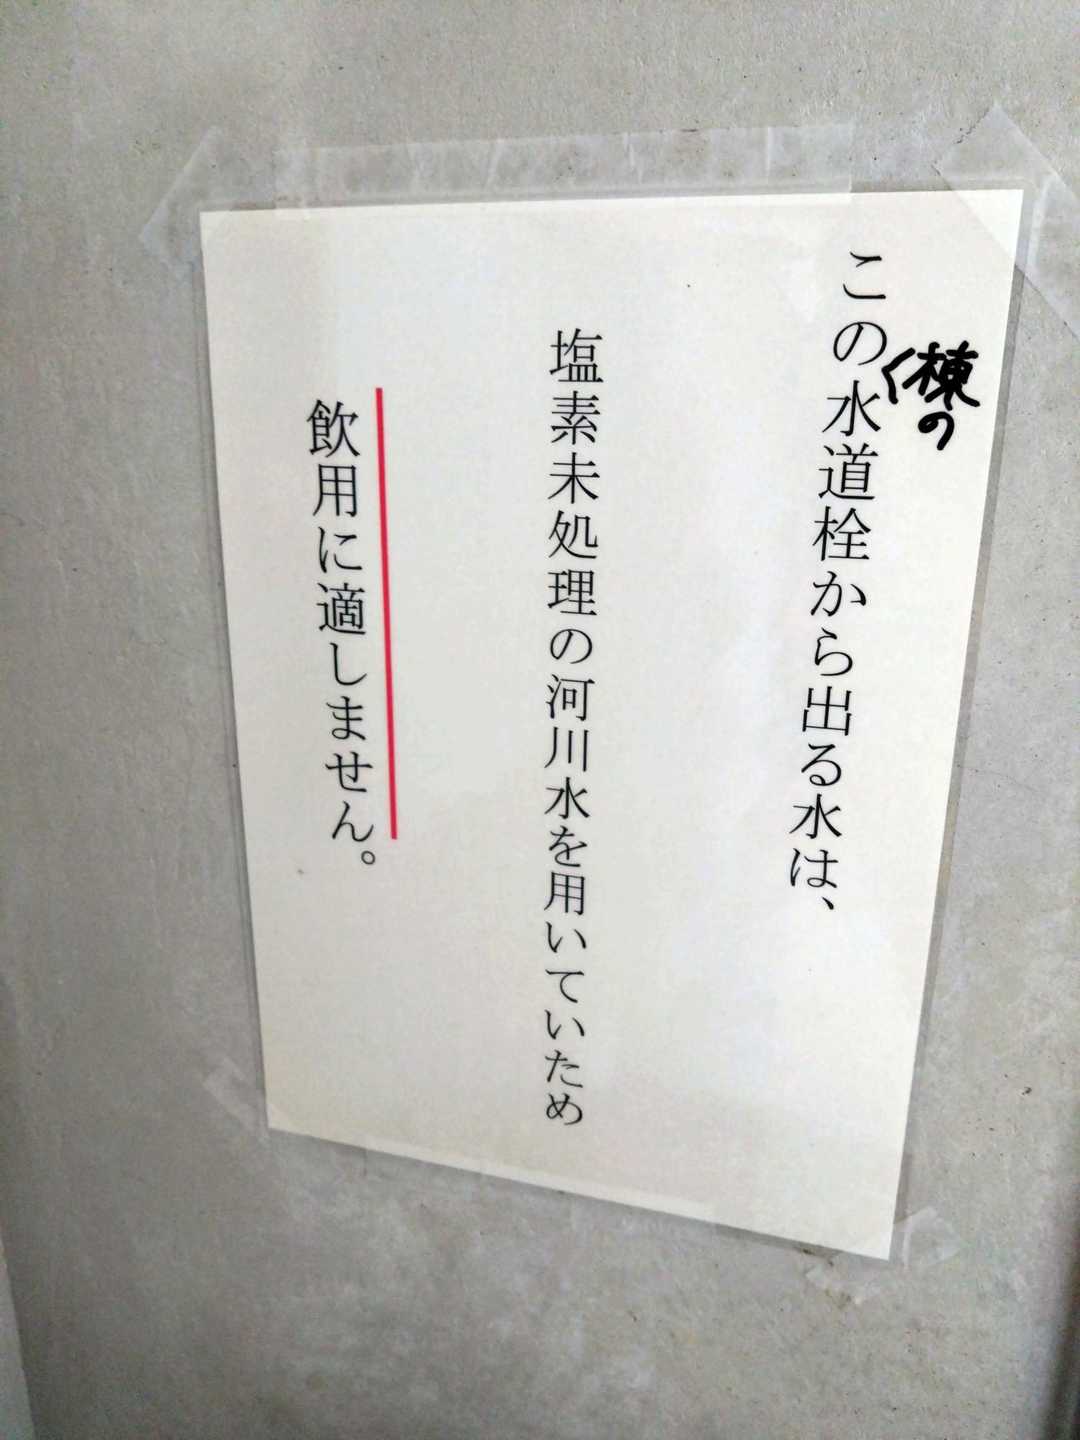 この棟の水道栓から出る水は、
塩素未処理の河川水を用いていため
飲用に適しません。